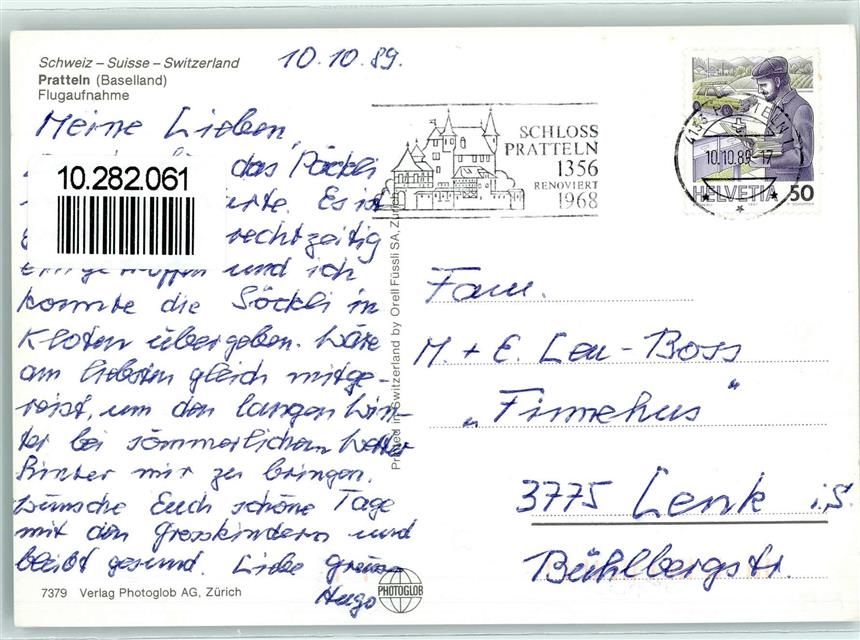 Schweiz – Suisse – Switzerland
Pratteln (Baselland)
Flugaufnahme
10.10.89.
Meine Lieben,
das Päckli
10.282.061
Es ist
rechtzeitig
eingetroffen und ich
konnte die Söckli in
Kloten übergeben. Wäre
am liebsten gleich mitge-
reist, um den langen Win-
ter bei sömmerlichem Wetter
hinter mir zu bringen.
Wünsche Euch schöne Tage
mit den Grosskindern und
bleibt gesund. Liebe Grüsse
Hugo
7379 Verlag Photoglob AG, Zürich
PHOTOGLOB
Printed in Switzerland by Orell Füssli SA, Zürich
SCHLOSS
PRATTELN
1356
RENOVIERT
1968
4133 PRATTELN
10.10.89-17
HELVETIA 50
Fam.
M. + E. Leu-Boss
„Firnehus"
3775 Lenk i.S.
Bühlbergstr.